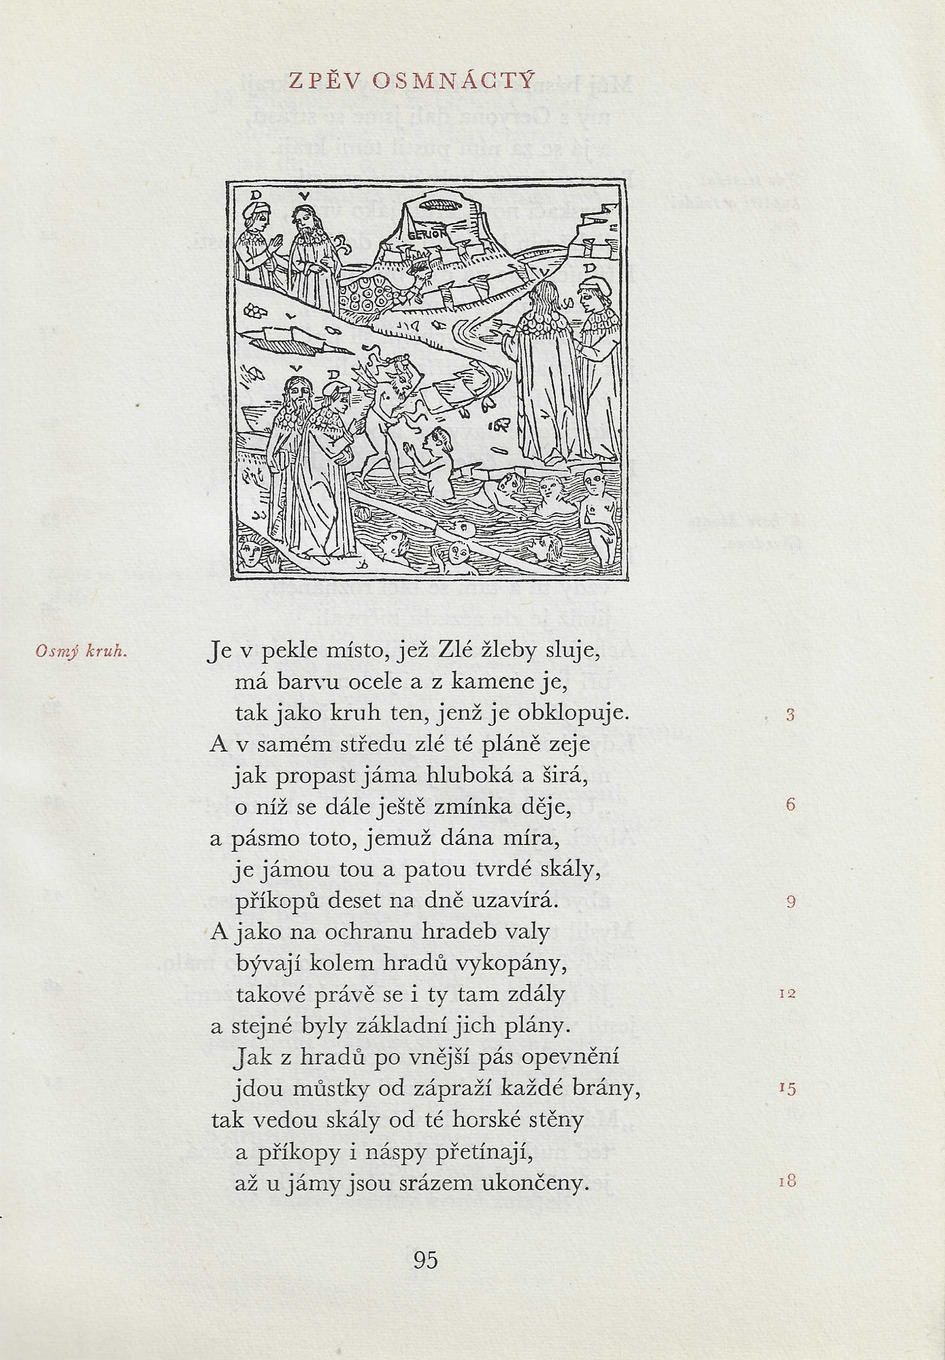 ZPĚV OSMNÁCTÝ
D V
GERION
V D
V D
Osmý kruh.
Je v pekle místo, jež Zlé žleby sluje,
má barvu ocele a z kamene je,
tak jako kruh ten, jenž je obklopuje. 3
A v samém středu zlé té pláně zeje
jak propast jáma hluboká a širá,
o níž se dále ještě zmínka děje, 6
a pásmo toto, jemuž dána míra,
je jámou tou a patou tvrdé skály,
příkopů deset na dně uzavírá. 9
A jako na ochranu hradeb valy
bývají kolem hradů vykopány,
takové právě se i ty tam zdály 12
a stejné byly základní jich plány.
Jak z hradů po vnější pás opevnění
jdou můstky od zápraží každé brány, 15
tak vedou skály od té horské stěny
a příkopy i náspy přetínají,
až u jámy jsou srázem ukončeny. 18
95